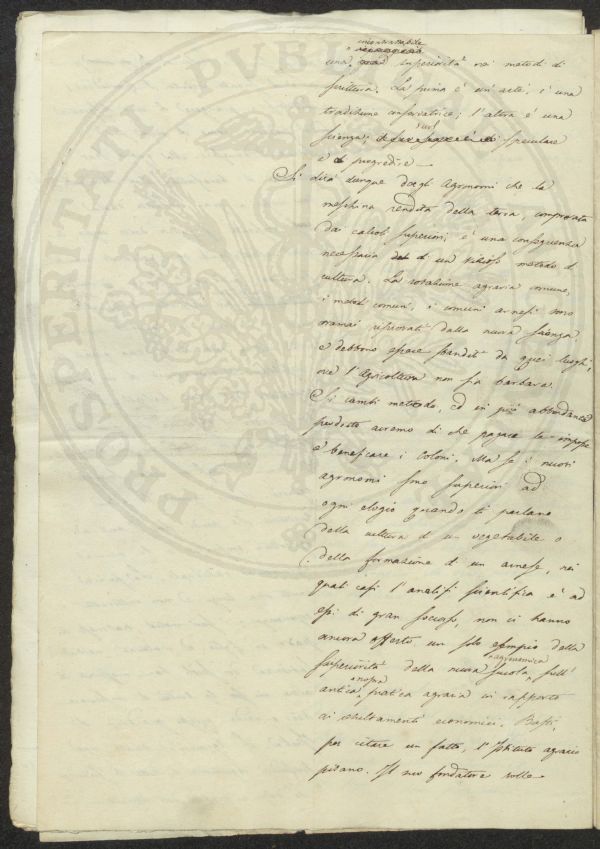 incontrastabile
una superiorità nei metodi di
scrittura. La prima è un'arte, è una
tradizione conservatrice; l'altra è una
scienza, vuol speculare
e progredire —
Si dirà dunque dagli Agronomi che la
meschina rendita della terra, comprovata
dai calcoli superiori, è una conseguenza
necessaria di un vizioso metodo di
cultura. La rotazione agraria comune,
i metodi comuni, i comuni arnesi sono
oramai riprovati dalla nuova scienza
e debbono essere sbanditi da quei luoghi,
ove l'Agricoltura non sia barbara.
Si cambi metodo, ed in più abbondante
prodotto avremo di che pagare le imposte
e beneficare i Coloni. Ma se i nuovi
agronomi sono superiori ad
ogni elogio quando ti parlano
della cultura d'un vegetabile o
della formazione d'un arnese, nei
quali casi l'analisi scientifica è ad
essi di gran soccorso, non ci hanno
ancora offerto un solo esempio della
superiorità della nuova scuola agronomica sull'
antica nostra pratica agraria in rapporto
ai resultamenti economici. Basti,
per citare un fatto, l'Istituto agrario
pisano. Il suo fondatore volle
PROSPERITATI PVBLI